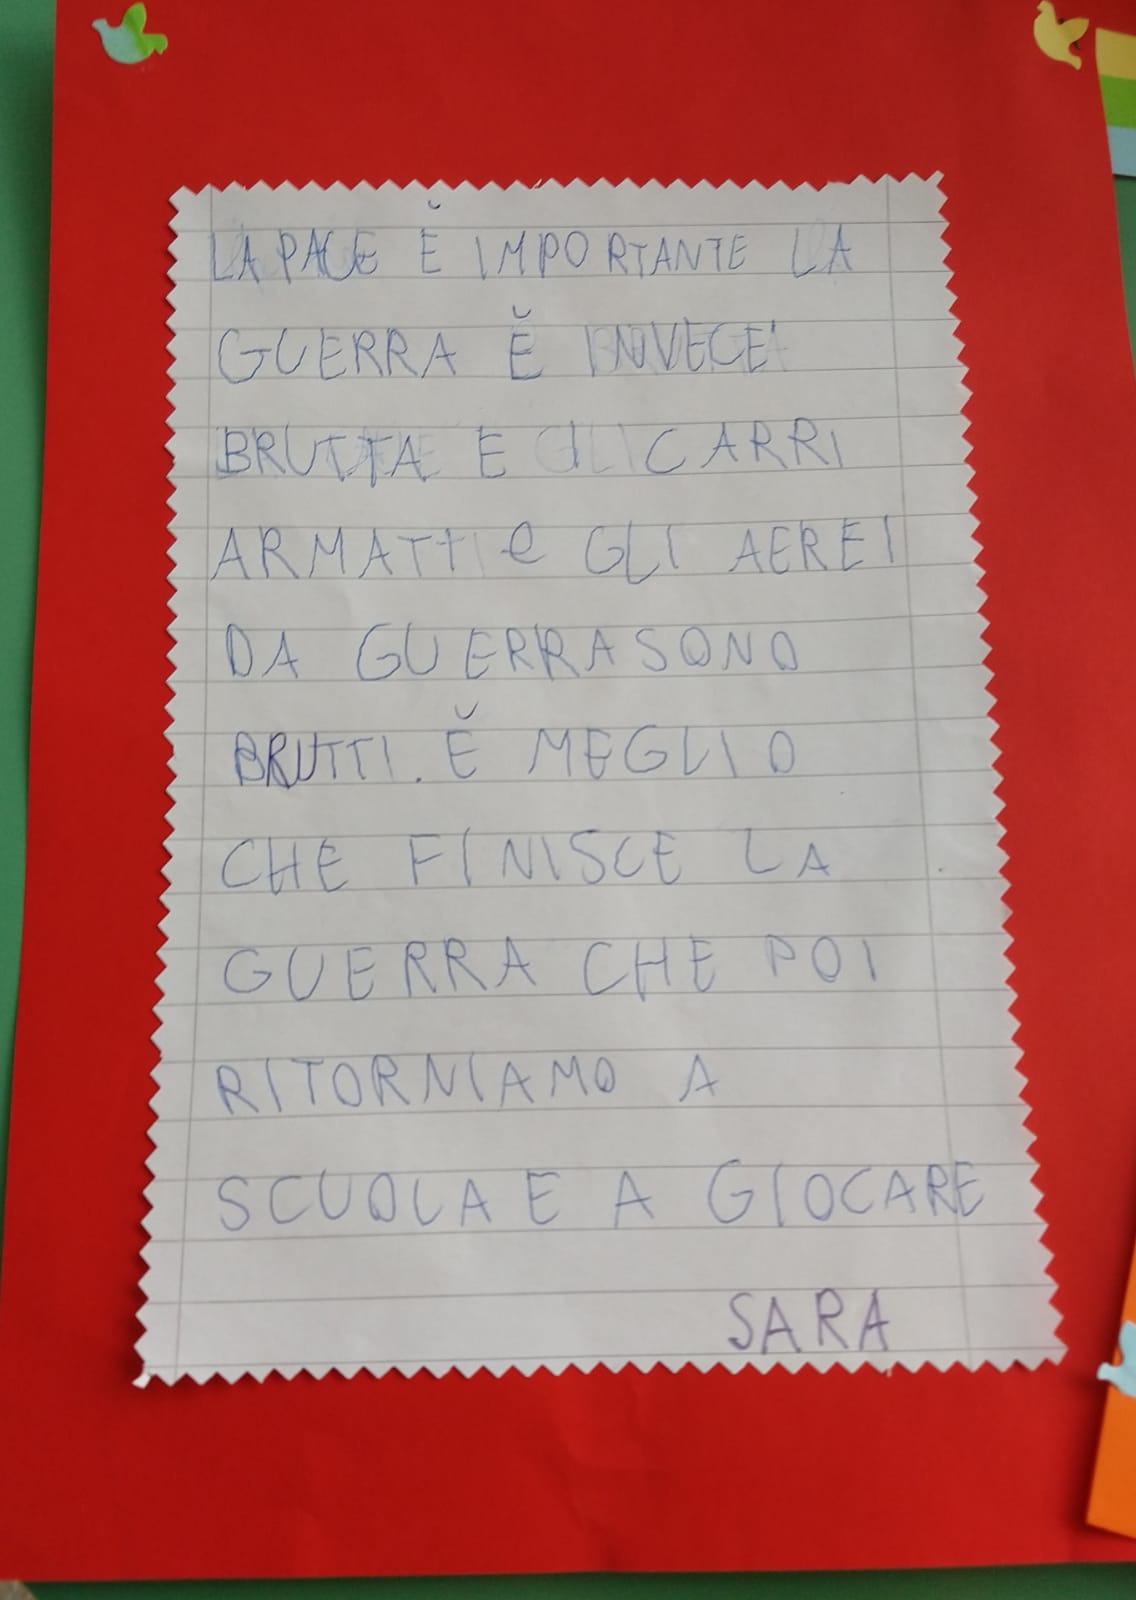 LA PACE Ĕ IMPORTANTE LA
GUERRA Ĕ INVECE
BRUTTA E I CARRI
ARMATTI e GLI AEREI
DA GUERRA SONO
BRUTTI. Ĕ MEGLIO
CHE FINISCE LA
GUERRA CHE POI
RITORNIAMO A
SCUOLA E A GIOCARE
SARA